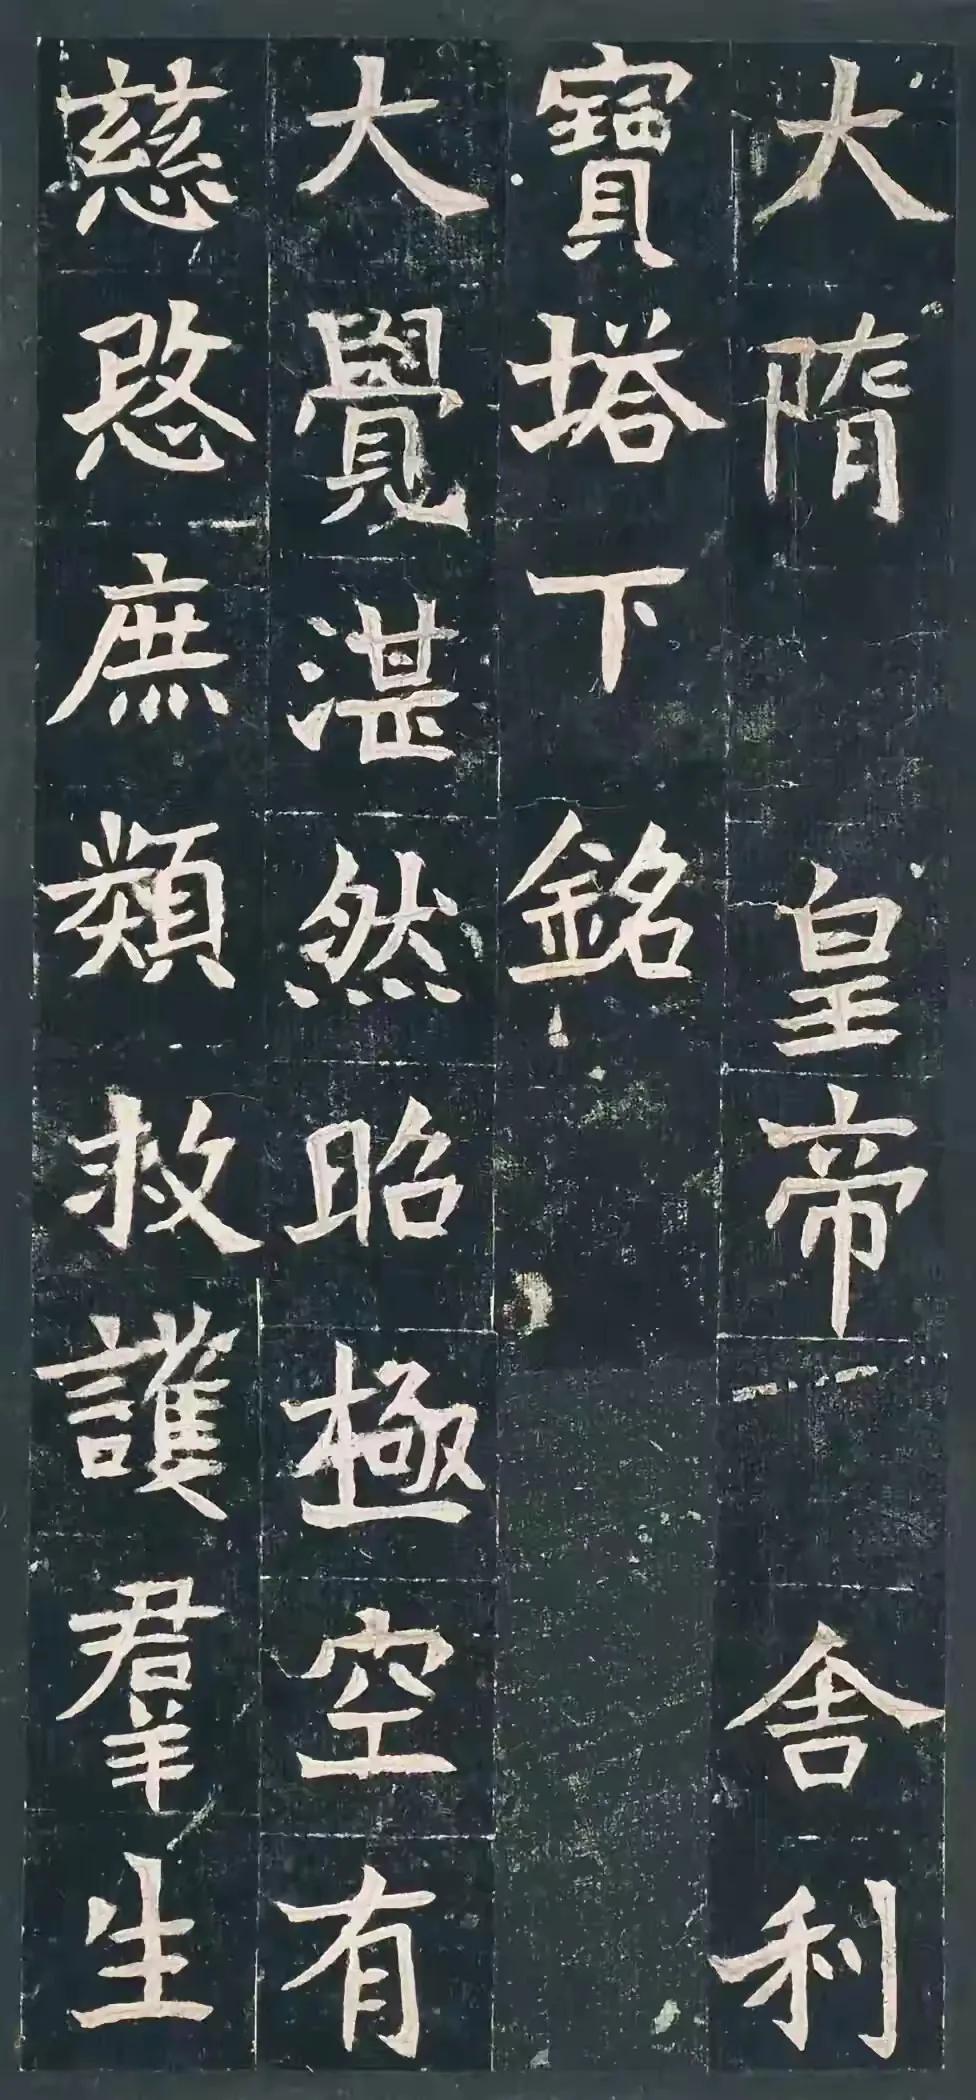 大隋皇帝舍利
寶塔下銘
大覺湛然昭極空有
慈愍庶類救護羣生